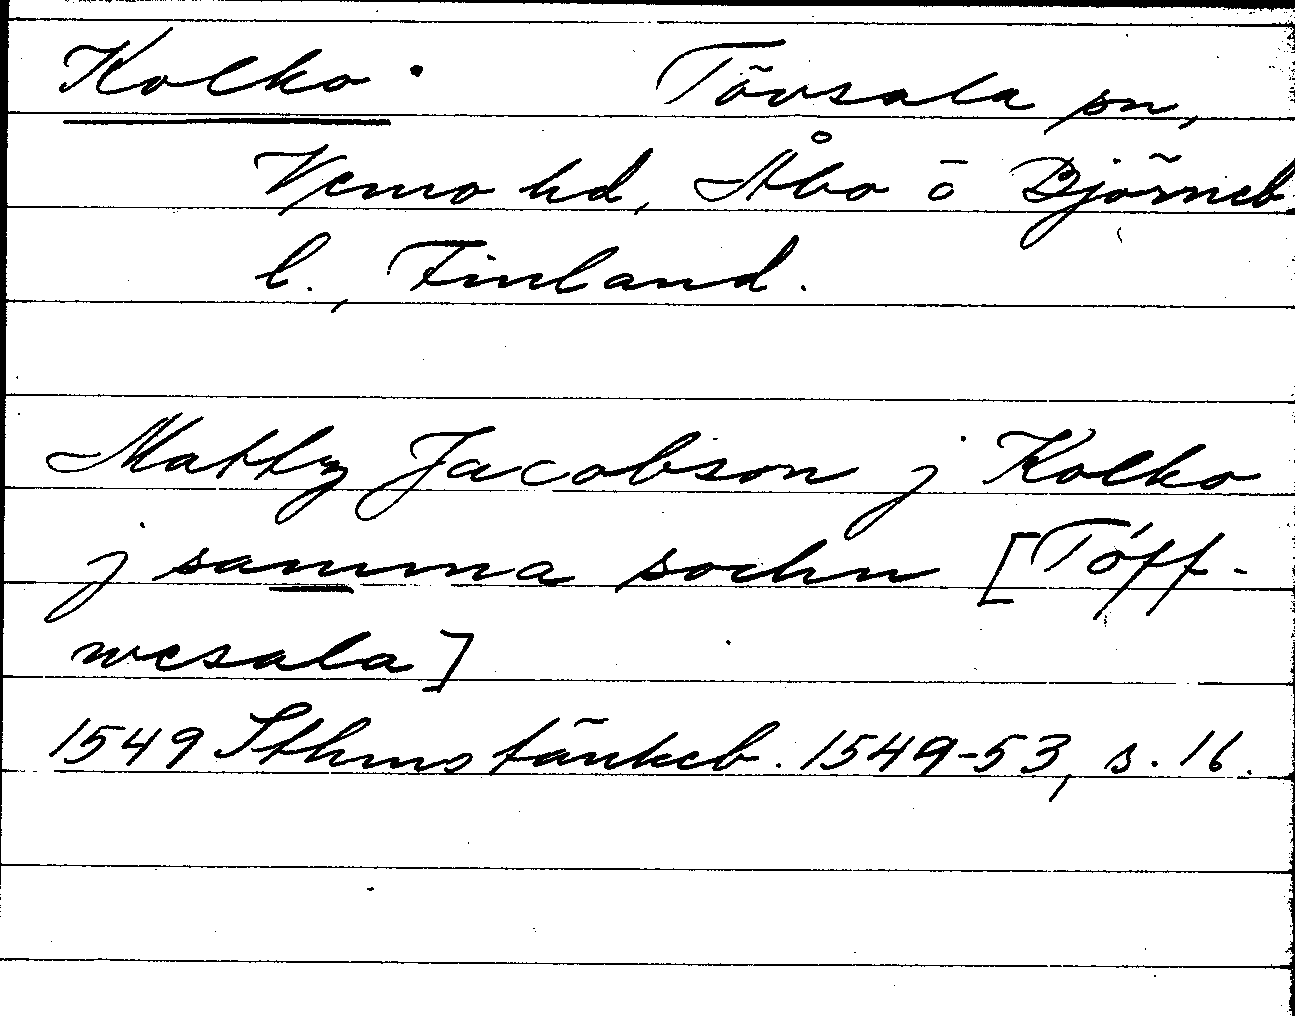 Kolko. Tövsala sn,
Vemo hd, Åbo o Björneb.
l., Finland.
Mattz Jacobson j Kolko
j samma sochn [Töff-
wesala]
1549 Sthms tänkeb. 1549-53, s. 16.